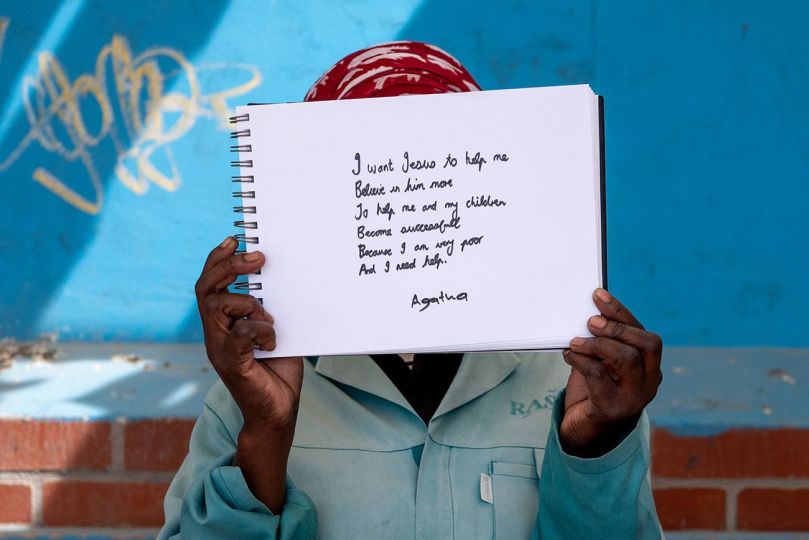 I want Jesus to help me
Believe in him more
To help me and my children
Become successfull
Because I am very poor
And I need help.
Agatha